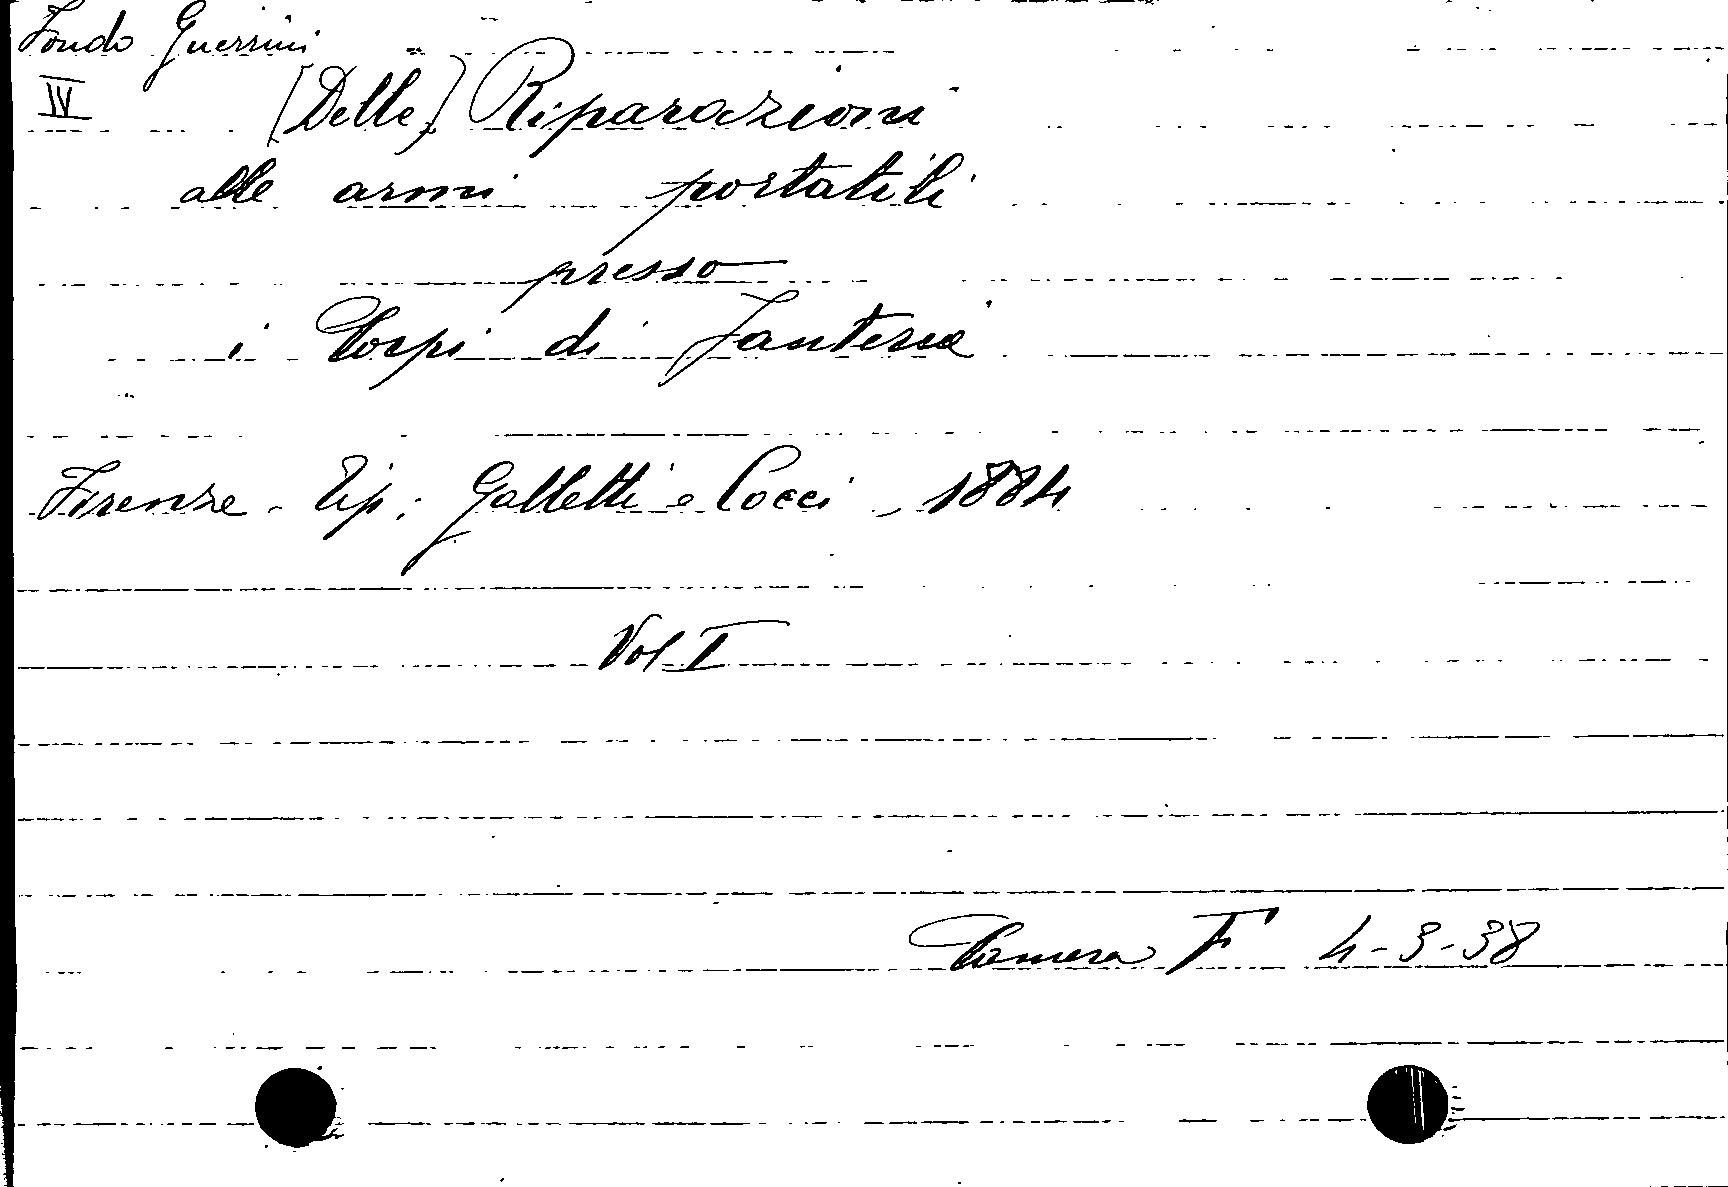 Fondo Guerrini
IV
[Delle] Riparazioni
alle armi portatili
presso
i Corpi di Fanteria
Firenze - Tip: Galletti e Cocci, 1884
Vol I
Camera F 4-3-38